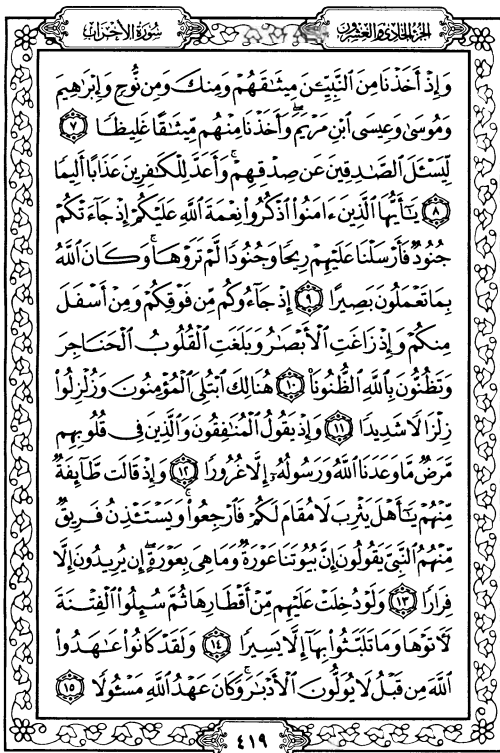 سُورَةُ الأَحْزَابِ الجُزْءُ الحَادِي وَالعِشْرُونَ
وَإِذْ أَخَذْنَا مِنَ ٱلنَّبِيِّـۧنَ مِيثَٰقَهُمْ وَمِنكَ وَمِن نُّوحٍ وَإِبْرَٰهِيمَ
وَمُوسَىٰ وَعِيسَى ٱبْنِ مَرْيَمَۖ وَأَخَذْنَا مِنْهُم مِّيثَٰقًا غَلِيظًا ٧
لِّيَسْـَٔلَ ٱلصَّٰدِقِينَ عَن صِدْقِهِمْۚ وَأَعَدَّ لِلْكَٰفِرِينَ عَذَابًا أَلِيمًا
٨ يَٰٓأَيُّهَا ٱلَّذِينَ ءَامَنُوا۟ ٱذْكُرُوا۟ نِعْمَةَ ٱللَّهِ عَلَيْكُمْ إِذْ جَآءَتْكُمْ
جُنُودٌ فَأَرْسَلْنَا عَلَيْهِمْ رِيحًا وَجُنُودًا لَّمْ تَرَوْهَاۚ وَكَانَ ٱللَّهُ
بِمَا تَعْمَلُونَ بَصِيرًا ٩ إِذْ جَآءُوكُم مِّن فَوْقِكُمْ وَمِنْ أَسْفَلَ
مِنكُمْ وَإِذْ زَاغَتِ ٱلْأَبْصَٰرُ وَبَلَغَتِ ٱلْقُلُوبُ ٱلْحَنَاجِرَ
وَتَظُنُّونَ بِٱللَّهِ ٱلظُّنُونَا۠ ١٠ هُنَالِكَ ٱبْتُلِىَ ٱلْمُؤْمِنُونَ وَزُلْزِلُوا۟
زِلْزَالًا شَدِيدًا ١١ وَإِذْ يَقُولُ ٱلْمُنَٰفِقُونَ وَٱلَّذِينَ فِى قُلُوبِهِم
مَّرَضٌ مَّا وَعَدَنَا ٱللَّهُ وَرَسُولُهُۥٓ إِلَّا غُرُورًا ١٢ وَإِذْ قَالَت طَّآئِفَةٌ
مِّنْهُمْ يَٰٓأَهْلَ يَثْرِبَ لَا مُقَامَ لَكُمْ فَٱرْجِعُوا۟ۚ وَيَسْتَـْٔذِنُ فَرِيقٌ
مِّنْهُمُ ٱلنَّبِىَّ يَقُولُونَ إِنَّ بُيُوتَنَا عَوْرَةٌ وَمَا هِىَ بِعَوْرَةٍۖ إِن يُرِيدُونَ إِلَّا
فِرَارًا ١٣ وَلَوْ دُخِلَتْ عَلَيْهِم مِّنْ أَقْطَارِهَا ثُمَّ سُئِلُوا۟ ٱلْفِتْنَةَ
لَـَٔاتَوْهَا وَمَا تَلَبَّثُوا۟ بِهَآ إِلَّا يَسِيرًا ١٤ وَلَقَدْ كَانُوا۟ عَٰهَدُوا۟
ٱللَّهَ مِن قَبْلُ لَا يُوَلُّونَ ٱلْأَدْبَٰرَۚ وَكَانَ عَهْدُ ٱللَّهِ مَسْـُٔولًا ١٥
٤١٩